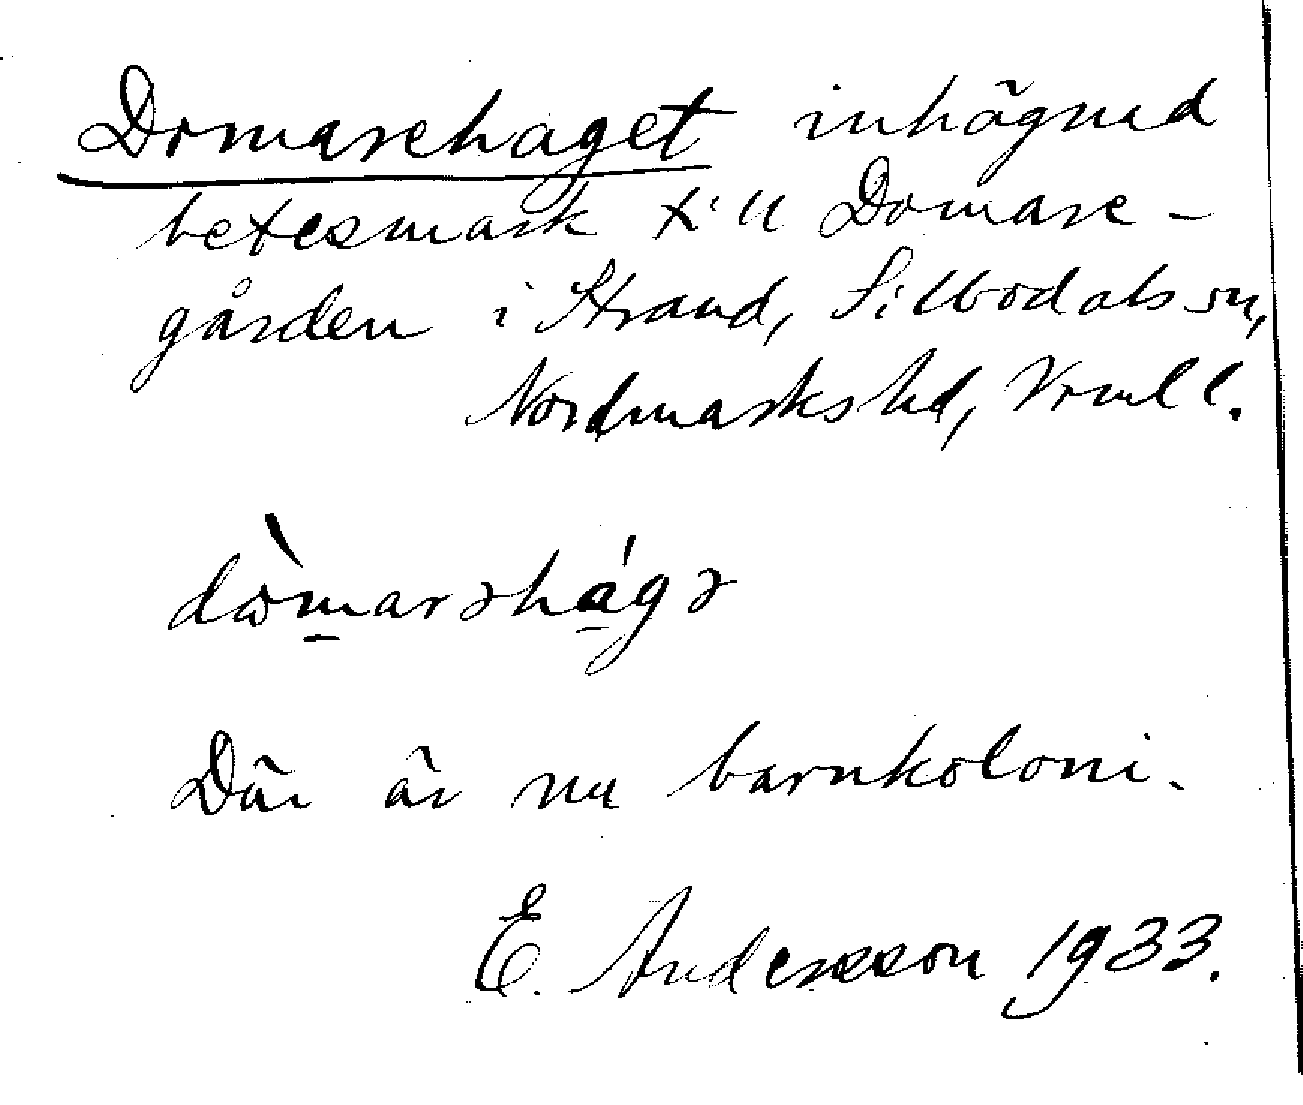 Domarehaget inhägnad
betesmark till Domare-
gården i Strand, Silbodals sn,
Nordmarks hd, Vrml l.
dòmarəhágə
Där är nu barnkoloni.
E. Andersson 1933.